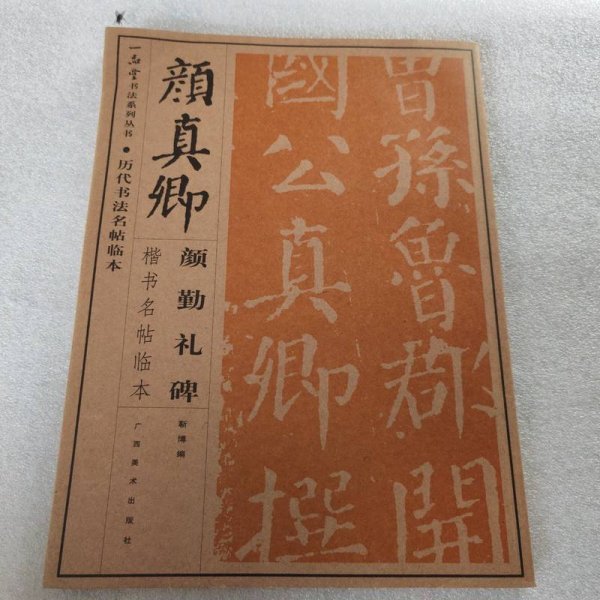 一品堂书法系列丛书•历代书法名帖临本
顔真卿
颜勤礼碑
楷书名帖临本
靳博编
广西美术出版社
曾孫魯郡開
國公真卿撰